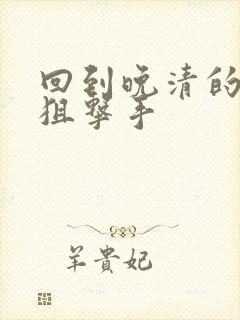 回到晚清的
狙擊手
羊貴妃